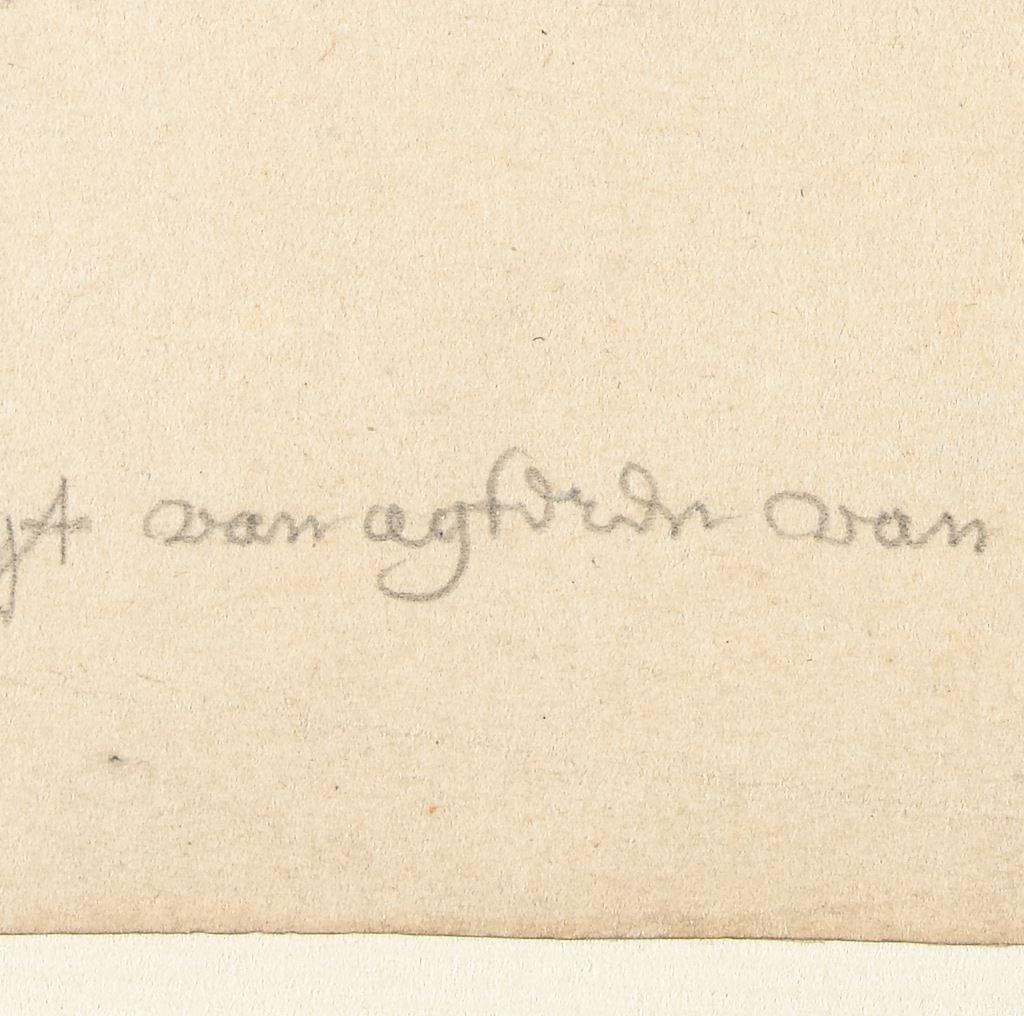 van agteren van